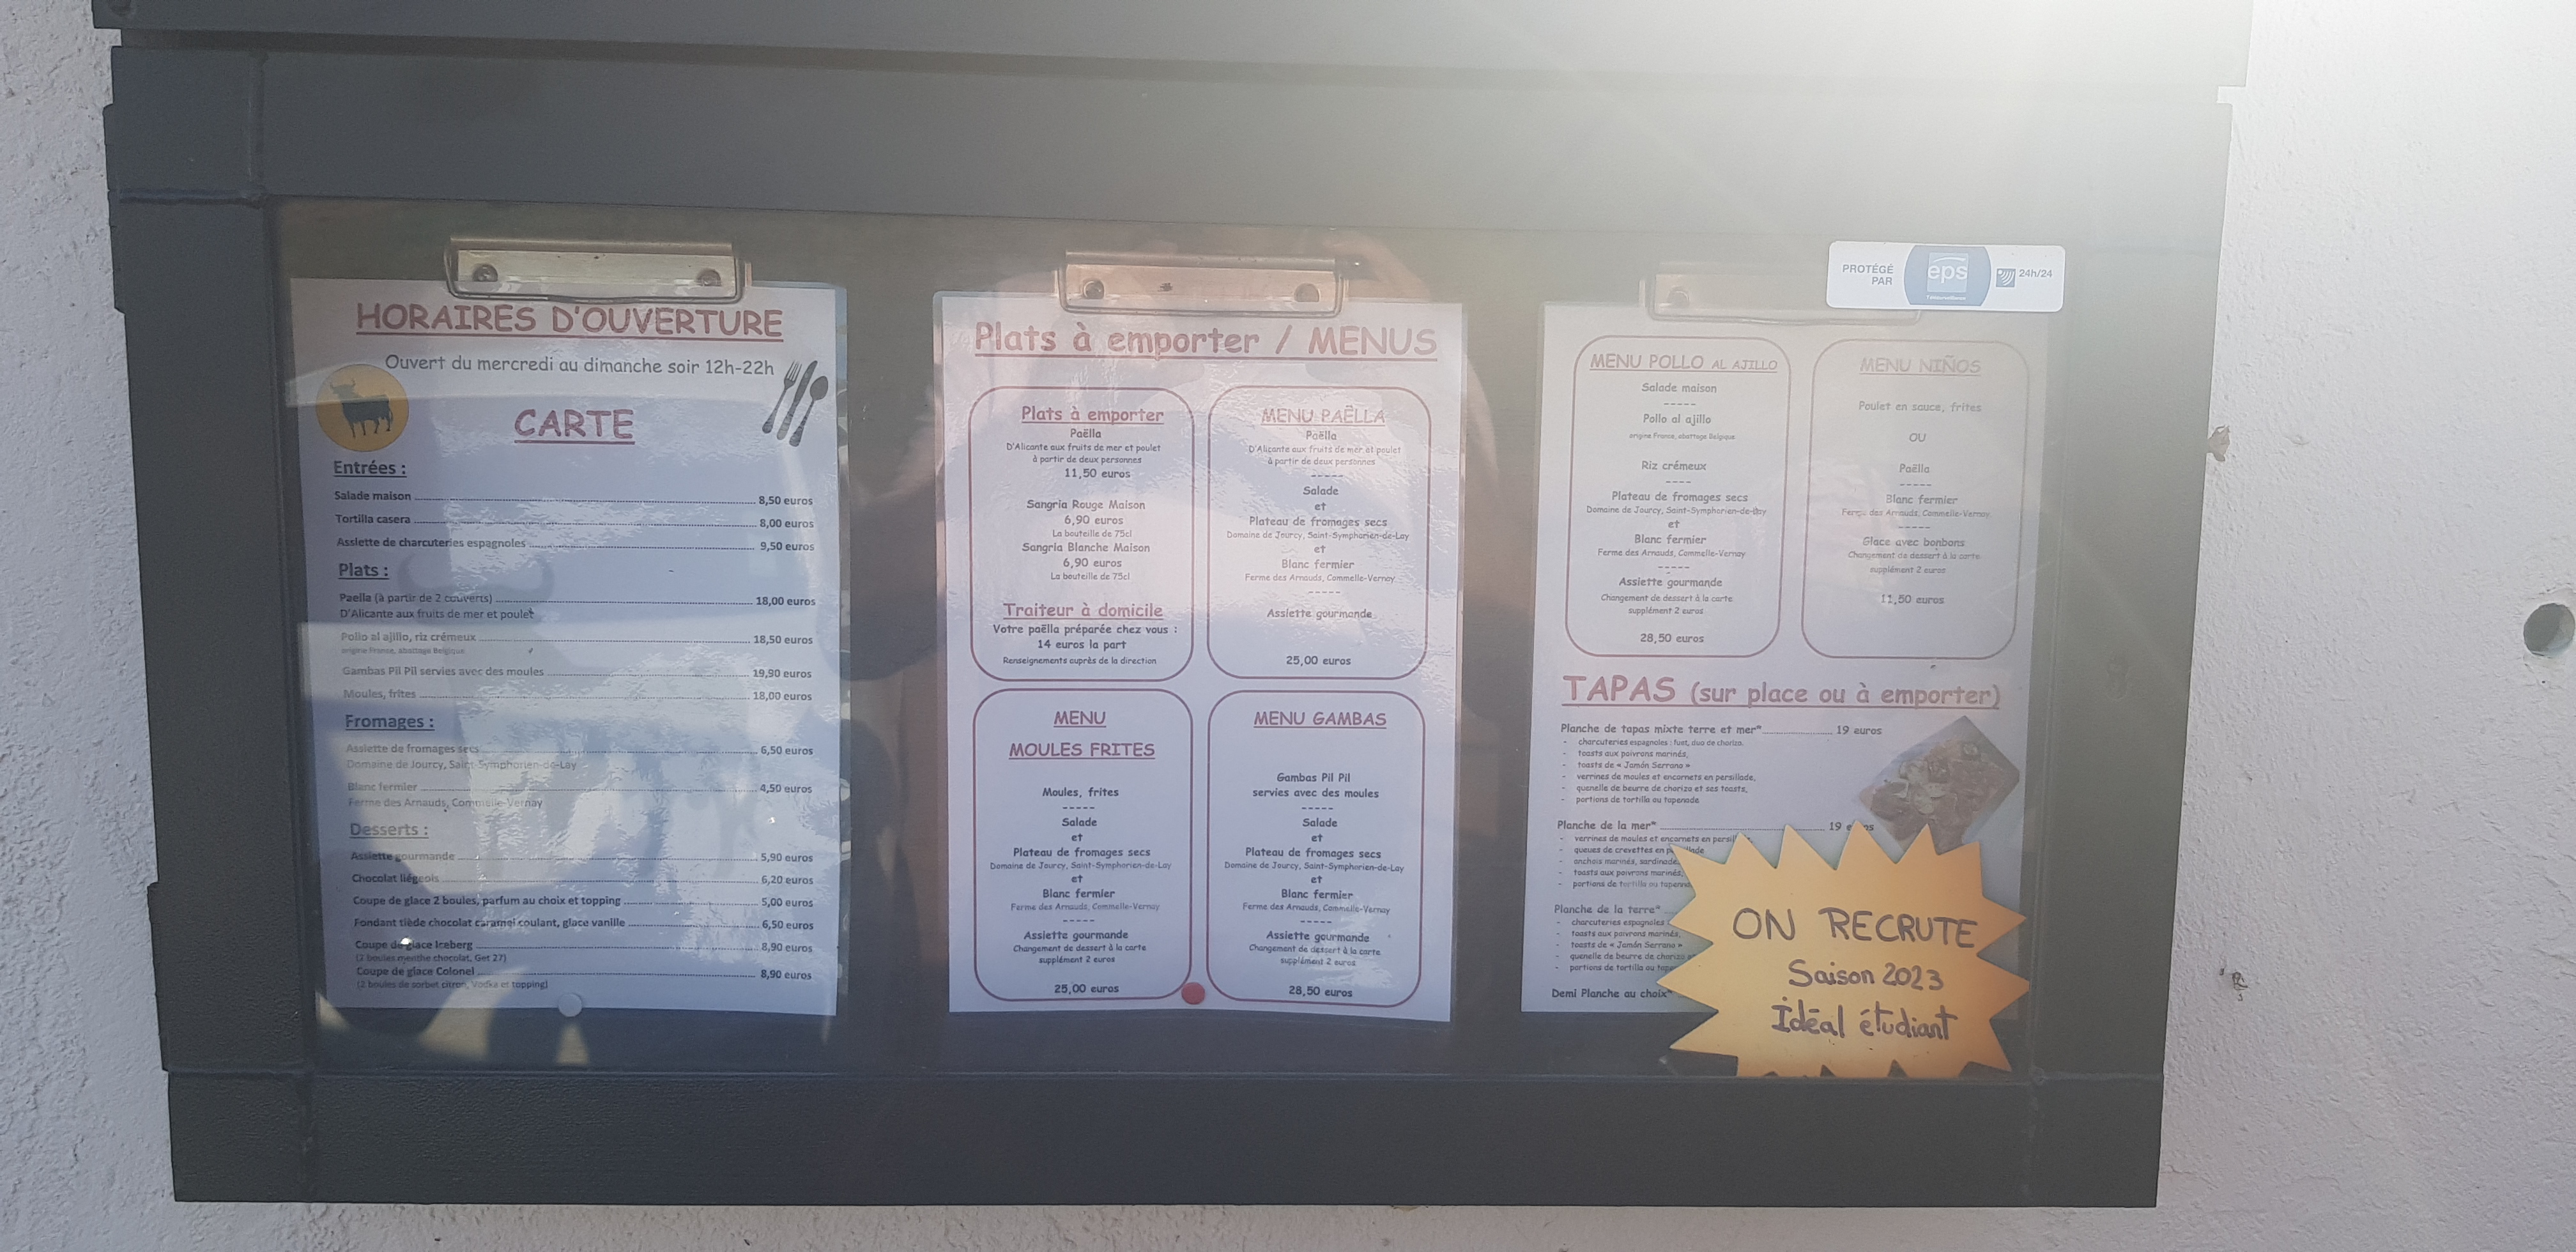 HORAIRES D'OUVERTURE
Ouvert du mercredi au dimanche soir 12h-22h
CARTE
Entrées :
Salade maison 8,50 euros
Tortilla casera 8,00 euros
Assiette de charcuteries espagnoles 9,50 euros
Plats :
Paella (à partir de 2 couverts) 18,00 euros
D'Alicante aux fruits de mer et poulet
Pollo al ajillo, riz crémeux 18,50 euros
origine France, abattage Belgique
Gambas Pil Pil servies avec des moules 19,90 euros
Moules, frites 18,00 euros
Fromages :
Assiette de fromages secs 6,50 euros
Domaine de Jourcy, Saint-Symphorien-de-Lay
Blanc fermier 4,50 euros
Ferme des Arnauds, Commelle-Vernay
Desserts :
Assiette gourmande 5,90 euros
Chocolat liégeois 6,20 euros
Coupe de glace 2 boules, parfum au choix et topping 5,00 euros
Fondant tiède chocolat caramel coulant, glace vanille 6,50 euros
Coupe de glace Iceberg 8,90 euros
(2 boules menthe chocolat, Get 27)
Coupe de glace Colonel 8,90 euros
(2 boules de sorbet citron, Vodka et topping)
Plats à emporter / MENUS
Plats à emporter
Paëlla
D'Alicante aux fruits de mer et poulet
à partir de deux personnes
11,50 euros
Sangria Rouge Maison
6,90 euros
La bouteille de 75cl
Sangria Blanche Maison
6,90 euros
La bouteille de 75cl
Traiteur à domicile
Votre paëlla préparée chez vous :
14 euros la part
Renseignements auprès de la direction
MENU PAËLLA
Paëlla
D'Alicante aux fruits de mer et poulet
à partir de deux personnes
-----
Salade
et
Plateau de fromages secs
Domaine de Jourcy, Saint-Symphorien-de-Lay
et
Blanc fermier
Ferme des Arnauds, Commelle-Vernay
-----
Assiette gourmande
25,00 euros
MENU
MOULES FRITES
Moules, frites
-----
Salade
et
Plateau de fromages secs
Domaine de Jourcy, Saint-Symphorien-de-Lay
et
Blanc fermier
Ferme des Arnauds, Commelle-Vernay
-----
Assiette gourmande
Changement de dessert à la carte
supplément 2 euros
25,00 euros
MENU GAMBAS
Gambas Pil Pil
servies avec des moules
-----
Salade
et
Plateau de fromages secs
Domaine de Jourcy, Saint-Symphorien-de-Lay
et
Blanc fermier
Ferme des Arnauds, Commelle-Vernay
-----
Assiette gourmande
Changement de dessert à la carte
supplément 2 euros
28,50 euros
PROTÉGÉ
PAR
eps
24h/24
MENU POLLO AL AJILLO
Salade maison
-----
Pollo al ajillo
origine France, abattage Belgique
Riz crémeux
----
Plateau de fromages secs
Domaine de Jourcy, Saint-Symphorien-de-Lay
et
Blanc fermier
Ferme des Arnauds, Commelle-Vernay
-----
Assiette gourmande
Changement de dessert à la carte
supplément 2 euros
28,50 euros
MENU NIÑOS
Poulet en sauce, frites
OU
Paëlla
-----
Blanc fermier
Ferme des Arnauds, Commelle-Vernay
-----
Glace avec bonbons
Changement de dessert à la carte
supplément 2 euros
11,50 euros
TAPAS (sur place ou à emporter)
Planche de tapas mixte terre et mer* 19 euros
- charcuteries espagnoles : fuet, duo de chorizo,
- toasts aux poivrons marinés,
- toasts de « Jamón Serrano »
- verrines de moules et encornets en persillade,
- quenelle de beurre de chorizo et ses toasts,
- portions de tortilla ou tapenade
Planche de la mer* 19
- verrines de moules et encornets en
- queues de crevettes en
- anchois marinés,
- toasts aux poivrons marinés,
- portions de tortilla ou
Planche de la terre*
- charcuteries espagnoles
- toasts aux poivrons marinés,
- toasts de « Jamón Serrano »
- quenelle de beurre de chorizo
- portions de tortilla ou
Demi Planche au choix*
ON RECRUTE
Saison 2023
Idéal étudiant